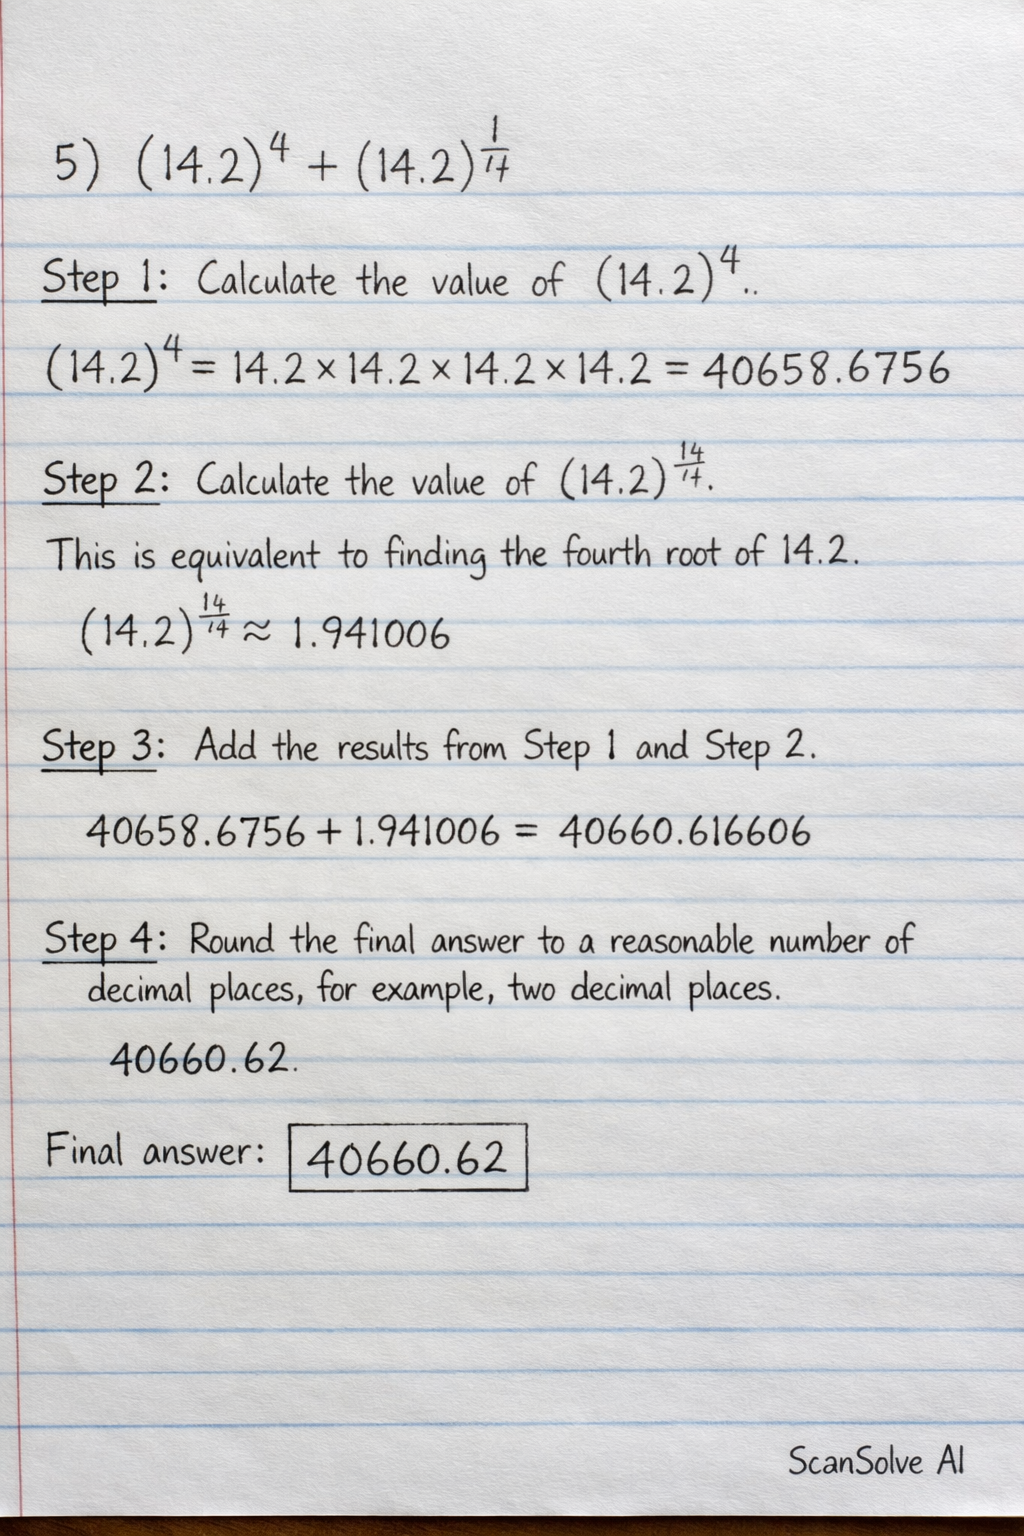 5) (14.2)^4 + (14.2)^(1/14)
Step 1: Calculate the value of (14.2)^4..
(14.2)^4 = 14.2 × 14.2 × 14.2 × 14.2 = 40658.6756
Step 2: Calculate the value of (14.2)^(14/14).
This is equivalent to finding the fourth root of 14.2.
(14.2)^(14/14) ≈ 1.941006
Step 3: Add the results from Step 1 and Step 2.
40658.6756 + 1.941006 = 40660.616606
Step 4: Round the final answer to a reasonable number of
decimal places, for example, two decimal places.
40660.62.
Final answer: 40660.62
ScanSolve AI